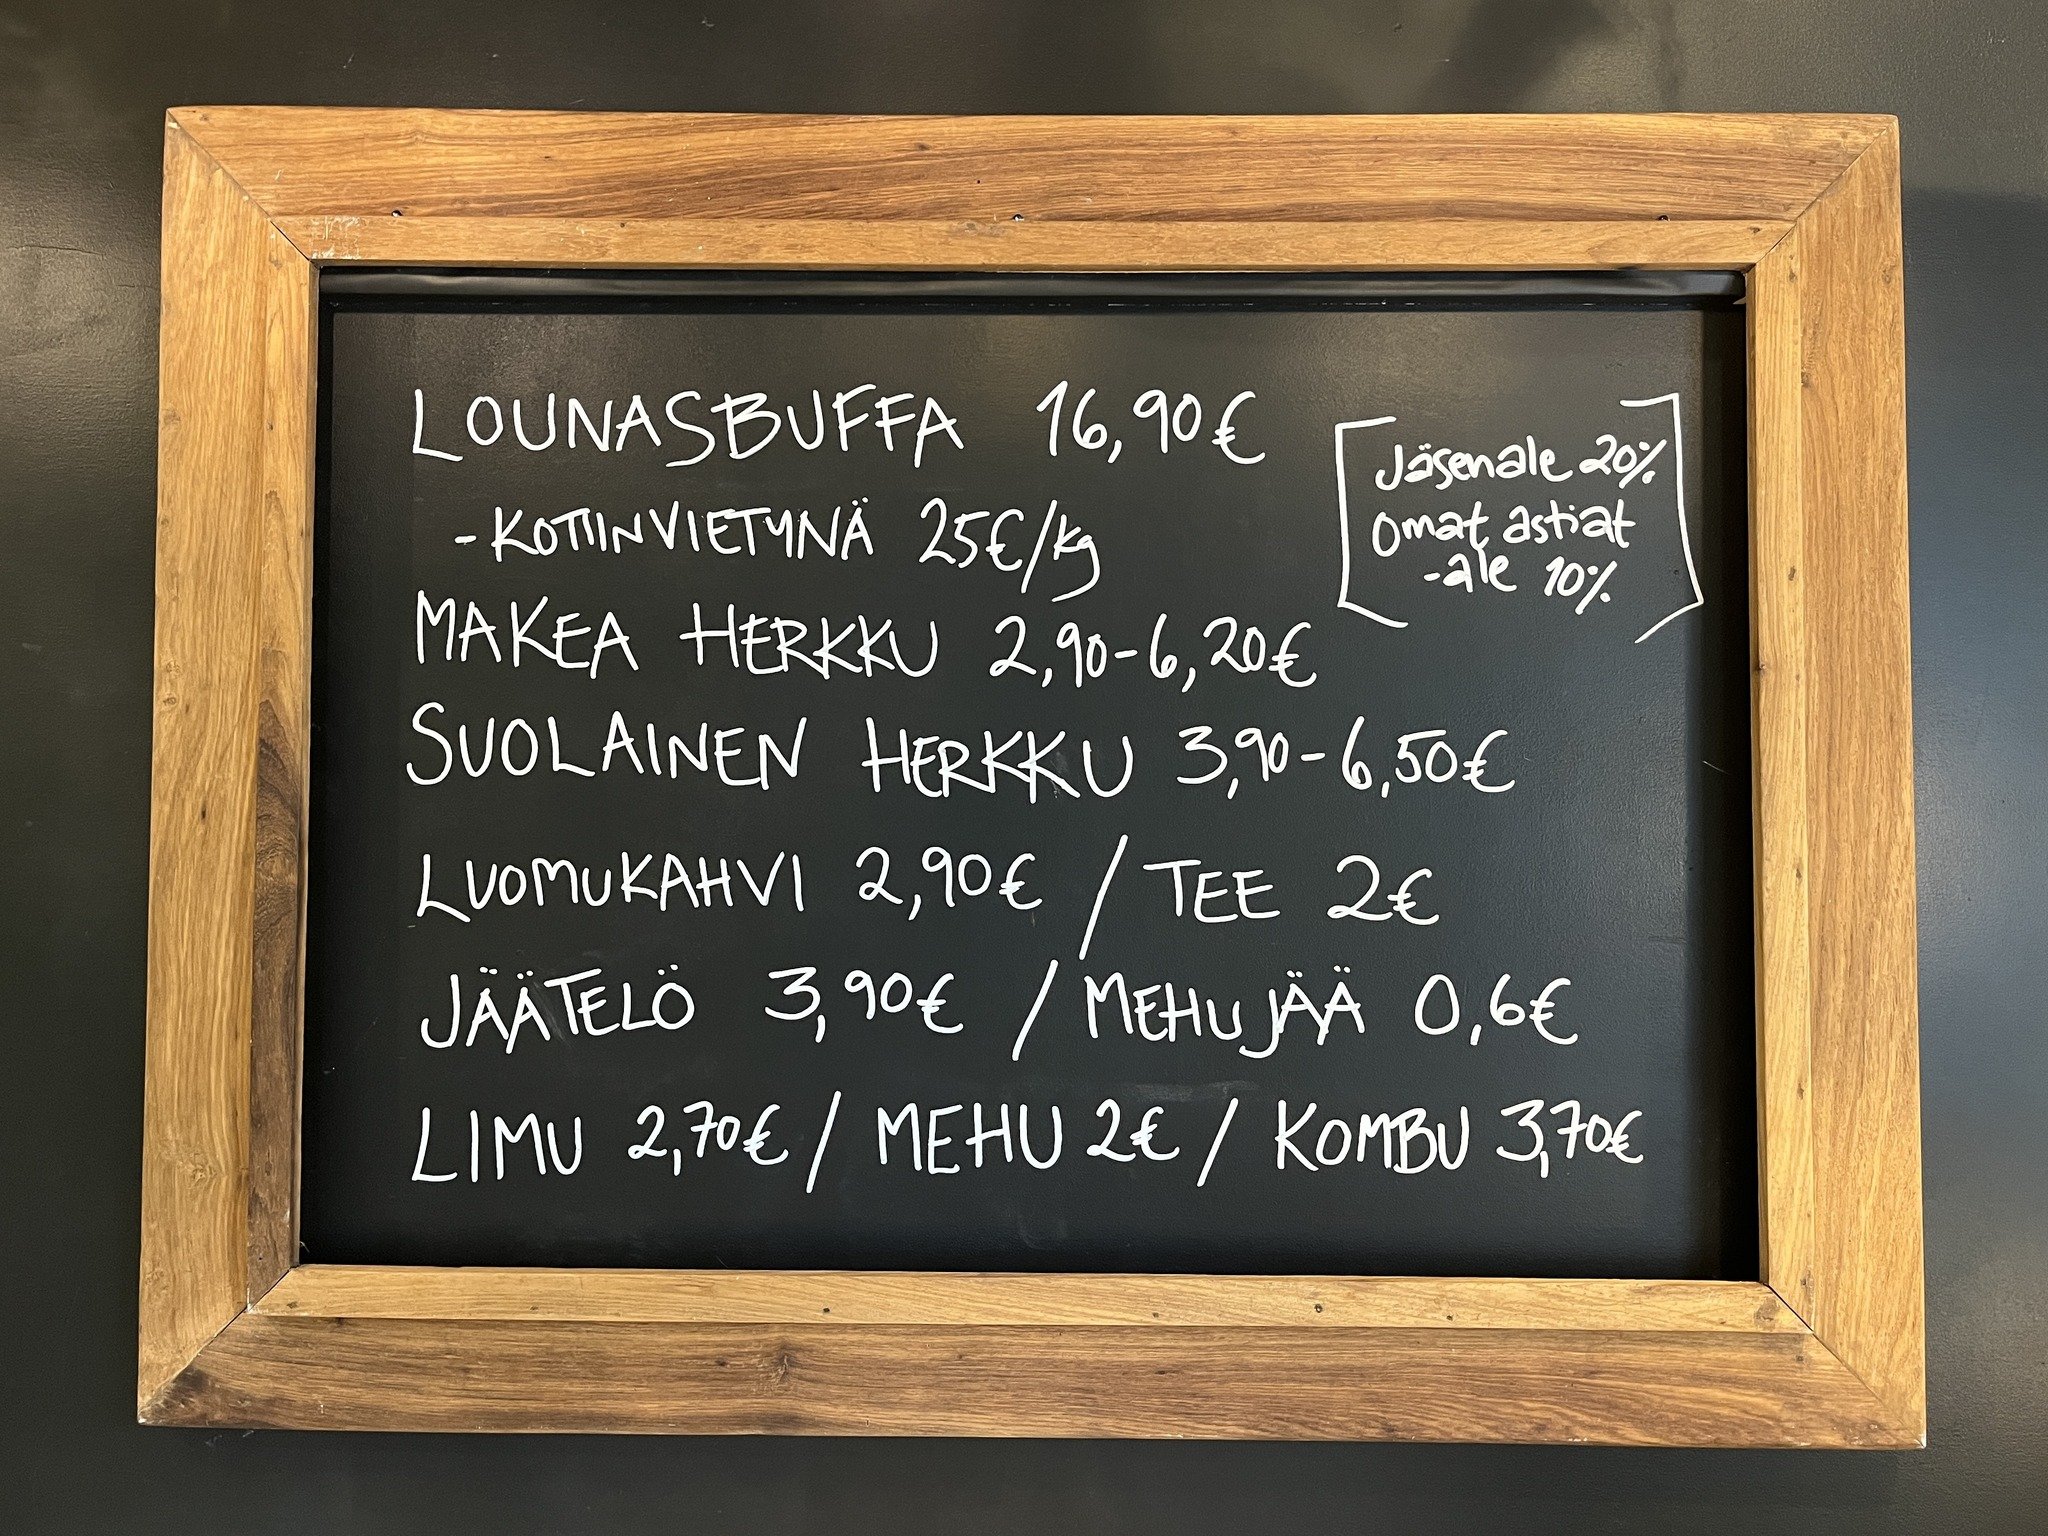 LOUNASBUFFA 16,90€
-KOTIINVIETYNÄ 25€/kg
MAKEA HERKKU 2,90-6,20€
SUOLAINEN HERKKU 3,90-6,50€
LUOMUKAHVI 2,90€ / TEE 2€
JÄÄTELÖ 3,90€ / MEHUJÄÄ 0,6€
LIMU 2,70€ / MEHU 2€ / KOMBU 3,70€
Jäsenale 20%
Omat astiat
-ale 10%